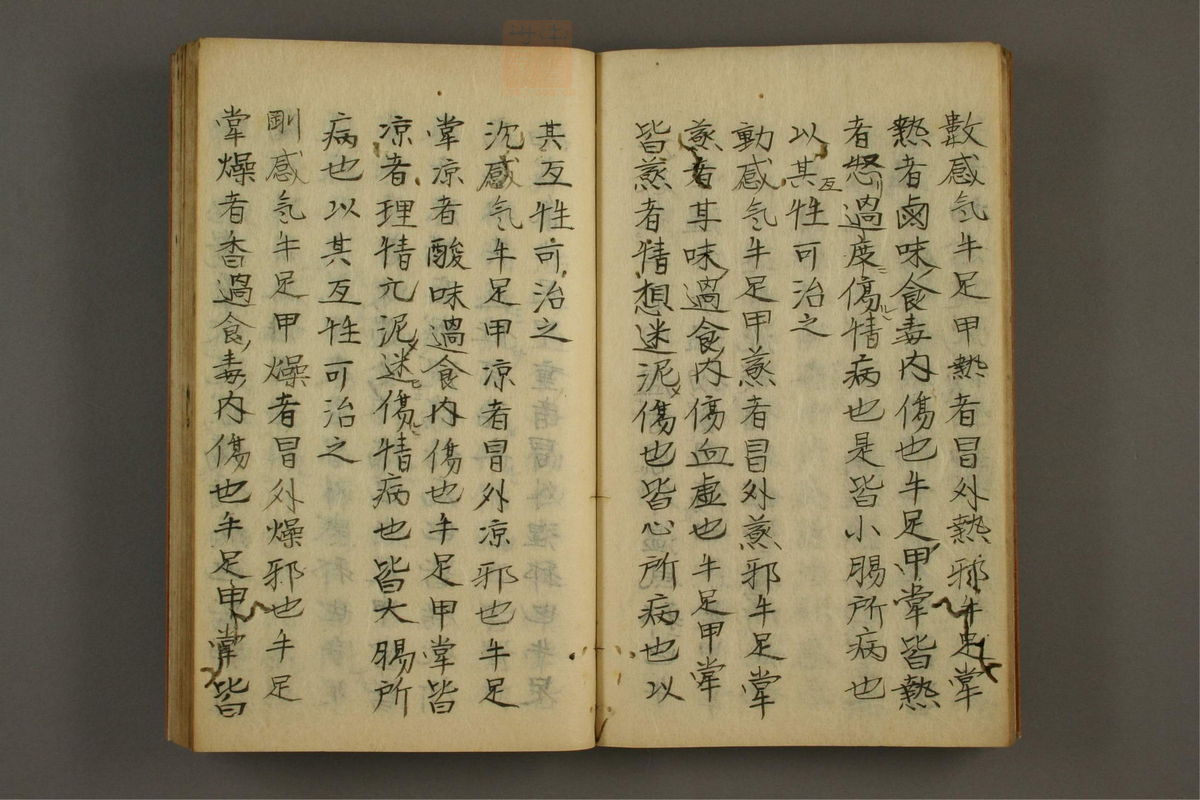 數感気牛足甲熱者冒外熱邪牛足掌
熱者鹵味食毒内傷也牛足甲掌皆熱
者怒過度傷情病也是皆小腸所病也
以其互性可治之
動感気牛足甲蒸者冒外蒸邪牛足掌
蒸者其味過食内傷血虚也牛足甲掌
皆蒸者情想迷泥傷也皆心所病也以
其互牲可治之
沉感気牛足甲凉者冒外凉邪也牛足
掌凉者酸味過食内傷也牛足甲掌皆
凉者理情亢泥迷傷情病也皆大腸所
病也以其互牲可治之
剛感気牛足甲燥者冒外燥邪也牛足
掌燥者香過食毒内傷也牛足甲掌皆